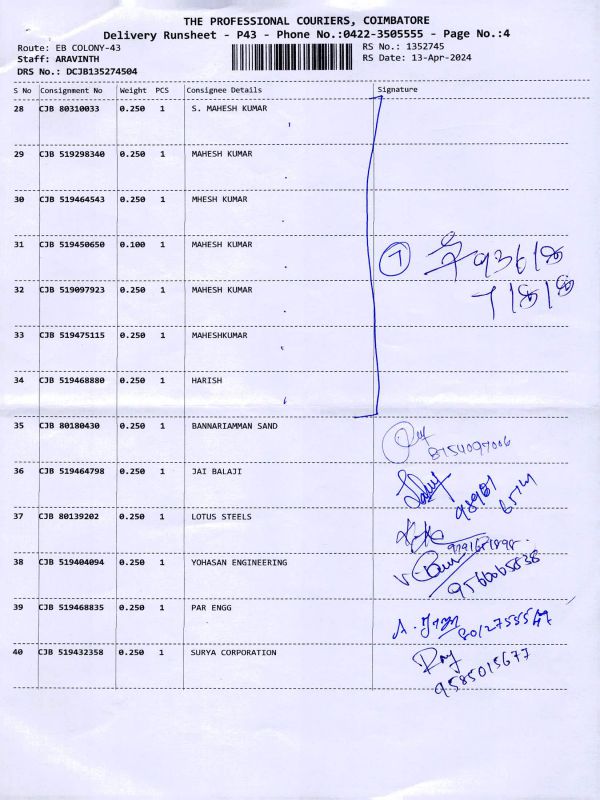 THE PROFESSIONAL COURIERS, COIMBATORE
Delivery Runsheet - P43 - Phone No.:0422-3505555 - Page No.:4
Route: EB COLONY-43
RS No.: 1352745
Staff: ARAVINTH
RS Date: 13-Apr-2024
DRS No.: DCJB135274504
S No Consignment No Weight PCS Consignee Details Signature
28 CJB 80310033 0.250 1 S. MAHESH KUMAR
29 CJB 519298340 0.250 1 MAHESH KUMAR
30 CJB 519464543 0.250 1 MHESH KUMAR
31 CJB 519450650 0.100 1 MAHESH KUMAR
7
32 CJB 519097923 0.250 1 MAHESH KUMAR
33 CJB 519475115 0.250 1 MAHESHKUMAR
34 CJB 519468880 0.250 1 HARISH
35 CJB 80180430 0.250 1 BANNARIAMMAN SAND
8754097006
36 CJB 519464798 0.250 1 JAI BALAJI
37 CJB 80139202 0.250 1 LOTUS STEELS
38 CJB 519404094 0.250 1 YOHASAN ENGINEERING
9566065838
39 CJB 519468835 0.250 1 PAR ENGG
40 CJB 519432358 0.250 1 SURYA CORPORATION
9585015677